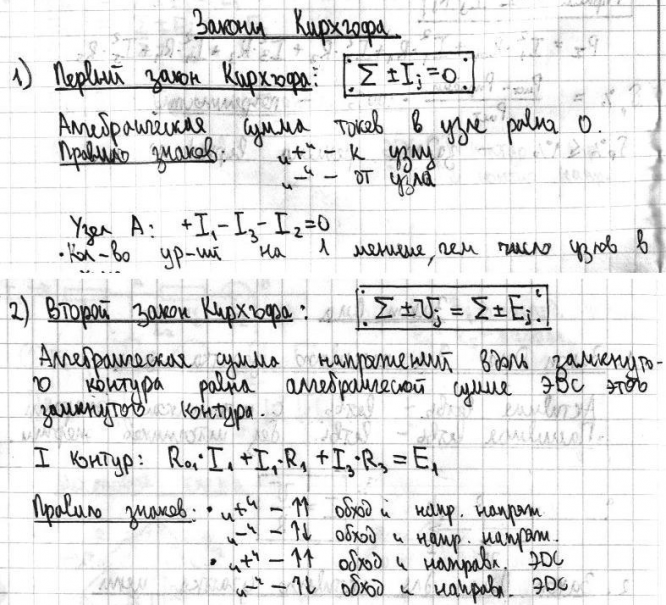 Законы Кирхгофа
1) Первый закон Кирхгофа: Σ ± Ij = 0
Алгебраическая сумма токов в узле равна 0.
Правило знаков: „+“ – к узлу
„–“ – от узла
Узел А: +I₁ – I₃ – I₂ = 0
• Кол-во ур-ний на 1 меньше, чем число узлов в
2) Второй закон Кирхгофа: Σ ± Uj = Σ ± Ej
Алгебраическая сумма напряжений вдоль замкнуто-
го контура равна алгебраической сумме ЭДС этого
замкнутого контура.
I контур: R₀₁·I₁ + I₁·R₁ + I₃·R₃ = E₁
Правило знаков: • „+“ – ↑↑ обход и напр. напряж.
„–“ – ↑↓ обход и напр. напряж.
• „+“ – ↑↑ обход и направл. ЭДС
„–“ – ↑↓ обход и направл. ЭДС